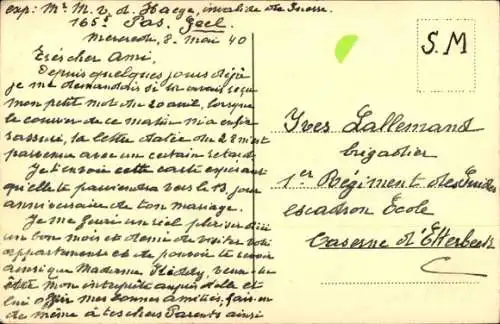 exp: Mr M. v. d. Haege, invalide de Guerre.
165 Pas, Geel
Mercredi, 8. mai 40
Très cher Ami.
Depuis quelques jours déjà
je me demandais si tu avais reçu
mon petit mot du 20 avril, lorsque
le courrier de ce matin m'a enfin
rassuré, ta lettre datée du 2 ct m'est
parvenue avec un certain retard.
Je t'envoie cette carte espérant
qu'elle te parviendra vers le 13, jour
anniversaire de ton mariage.
Je me ferai un réel plaisir d'ici
un bon mois et demi de visiter votre
appartement et de pouvoir te revoir
ainsi que Madame veux-tu
être mon interprète auprès d'elle et
lui offrir mes bonnes amitiés, fais-en
de même à tes chers Parents ainsi
S.M
Yves Lallemand
brigadier
1er Régiment des Guides
escadron École
Caserne d'Etterbeek